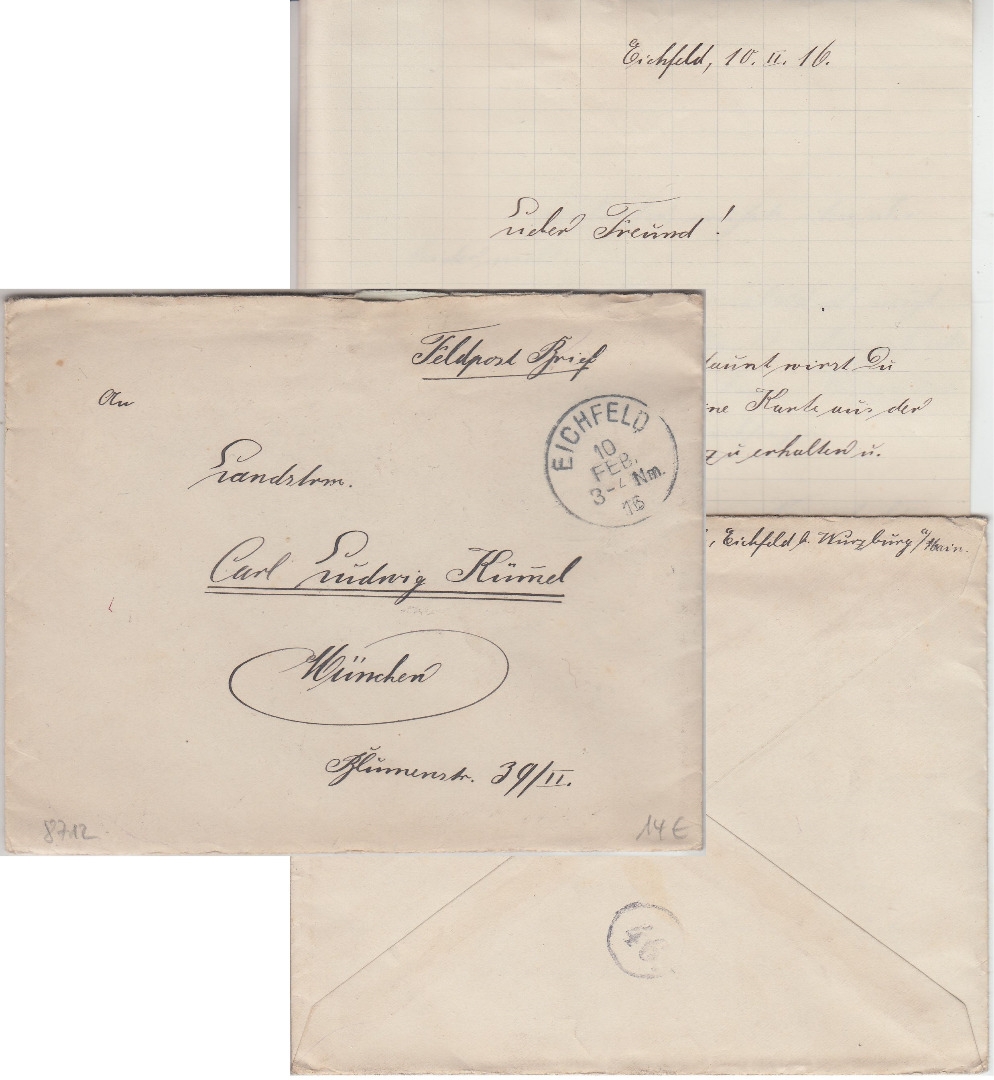 Eichfeld, 10. II. 16.
Lieber Freund!
taunt wirst Du
ne Karte aus der
zu erhalten u.
Feldpost Brief
An
EICHFELD
10
FEB.
3-4 Nm.
16
Landstrm.
Carl Ludwig Kümel
München
Blumenstr. 39/II.
8712
14 €
, Eichfeld b. Würzburg a/Main.